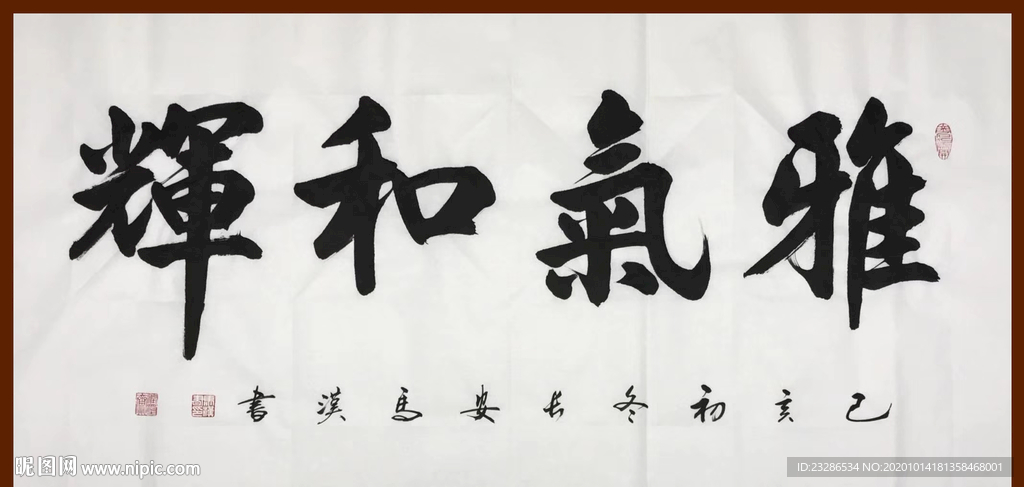 雅氣和輝
己亥初冬長安馬漢書
昵图网 www.nipic.com
ID:23286534 NO:20201014181358468001